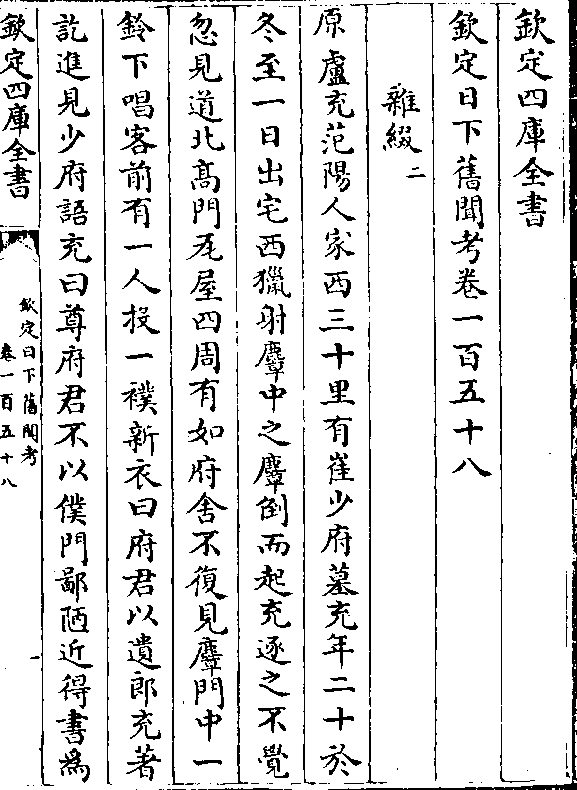 欽定四庫全書
欽定日下舊聞考卷一百五十八
雜綴二
原盧充范陽人家西三十里有崔少府墓充年二十於
冬至一日出宅西獵射麞中之麞倒而起充逐之不覺
忽見道北髙門瓦屋四周有如府舍不復見麞門中一
鈴下唱客前有一人投一襆新衣曰府君以遺郎充著
訖進見少府語充曰尊府君不以僕門鄙陋近得書為
欽定四庫全書
欽定日下舊聞考
卷一百五十八
一